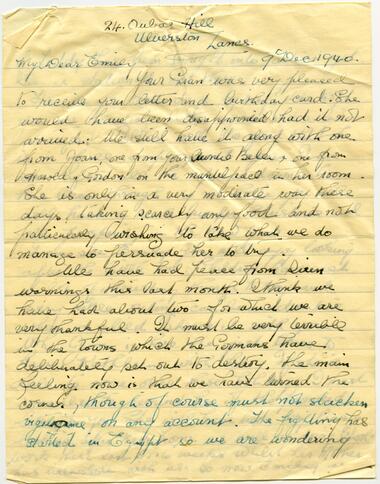 24. Hill
Ulverston
Lancs.
My Dear Emily 9th Dec 1940.
Your Gran was very pleased
to receive your letter and birthday card. She
would have been disappointed had it not
arrived. We still have it along with one
from Joan, one from your Auntie Belle & one from
Harold & Gordon on the mantel in her room.
She is only in a very moderate way these
days, taking scarcely any food and not
particularly wishing to take what we do
manage to persuade her to try.
We have had peace from
warnings this last month. I think we
have had about two for which we are
very thankful. It must be very terrible
in the towns which the Germans have
deliberately set out to destroy. The main
feeling now is that we have turned the
corner, though of course must not slacken
on any account. The fighting has
started in Egypt so we are wondering